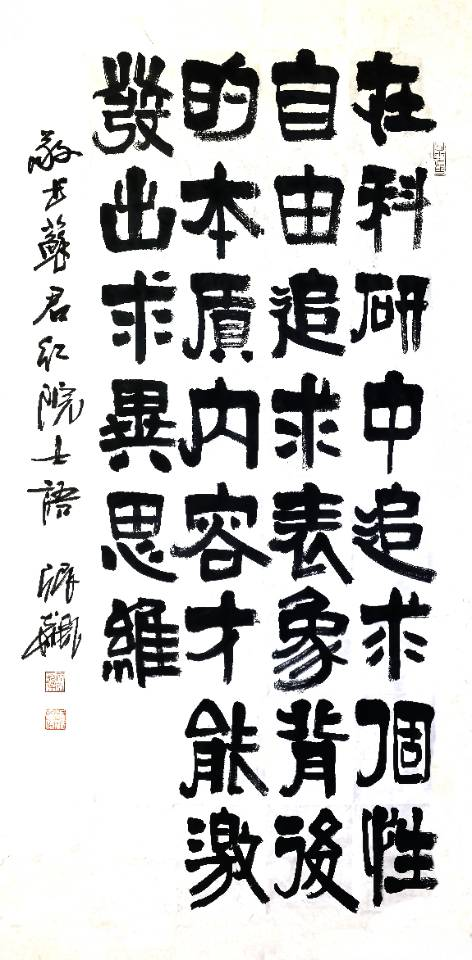 在科研中追求個性
自由追求表象背後
的本質内容才能激
發出求異思維
敬书蘇君红院士語